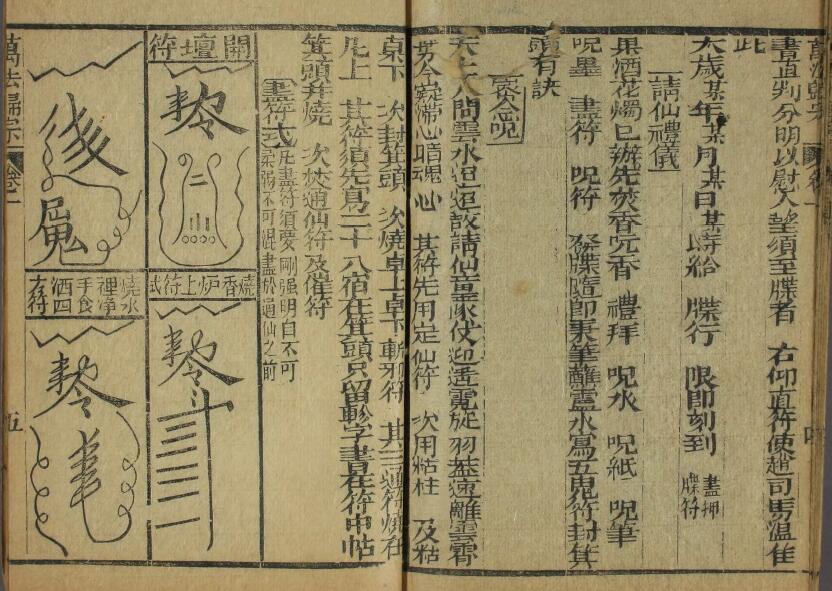 萬法歸宗 卷一
書直判分明以慰人望須至牒者 右仰直符使趙司馬溫佳
此
大歲某年某月某日某時給 牒行 限即刻到 畫押牒符
請仙禮儀
果酒花燭已辦先焚香咒香 禮拜 咒水 咒紙 咒筆
咒墨 畫符 咒符 發牒隨即秉筆蘸靈水寫五鬼符封箕
頭有訣
天上人間雲水迢迢故請仙童家伏迎遙電旋羽蓋遠離雲霄
其符先用定仙符 次用粘柱 及粘
桌下 次封箕頭 次燒桌上桌下斬邪符 其三道符燒在
凡上 其符須先寫二十八宿在箕頭只留軫字書在符中帖
箕頭并燒 次焚通仙符及催符
書符式 凡畫符須要剛强明白不可
柔弱不可混畫於通仙之前
開壇符
燒香炉上符式
燒水裡净手食酒四方符
萬法歸宗 卷一
五